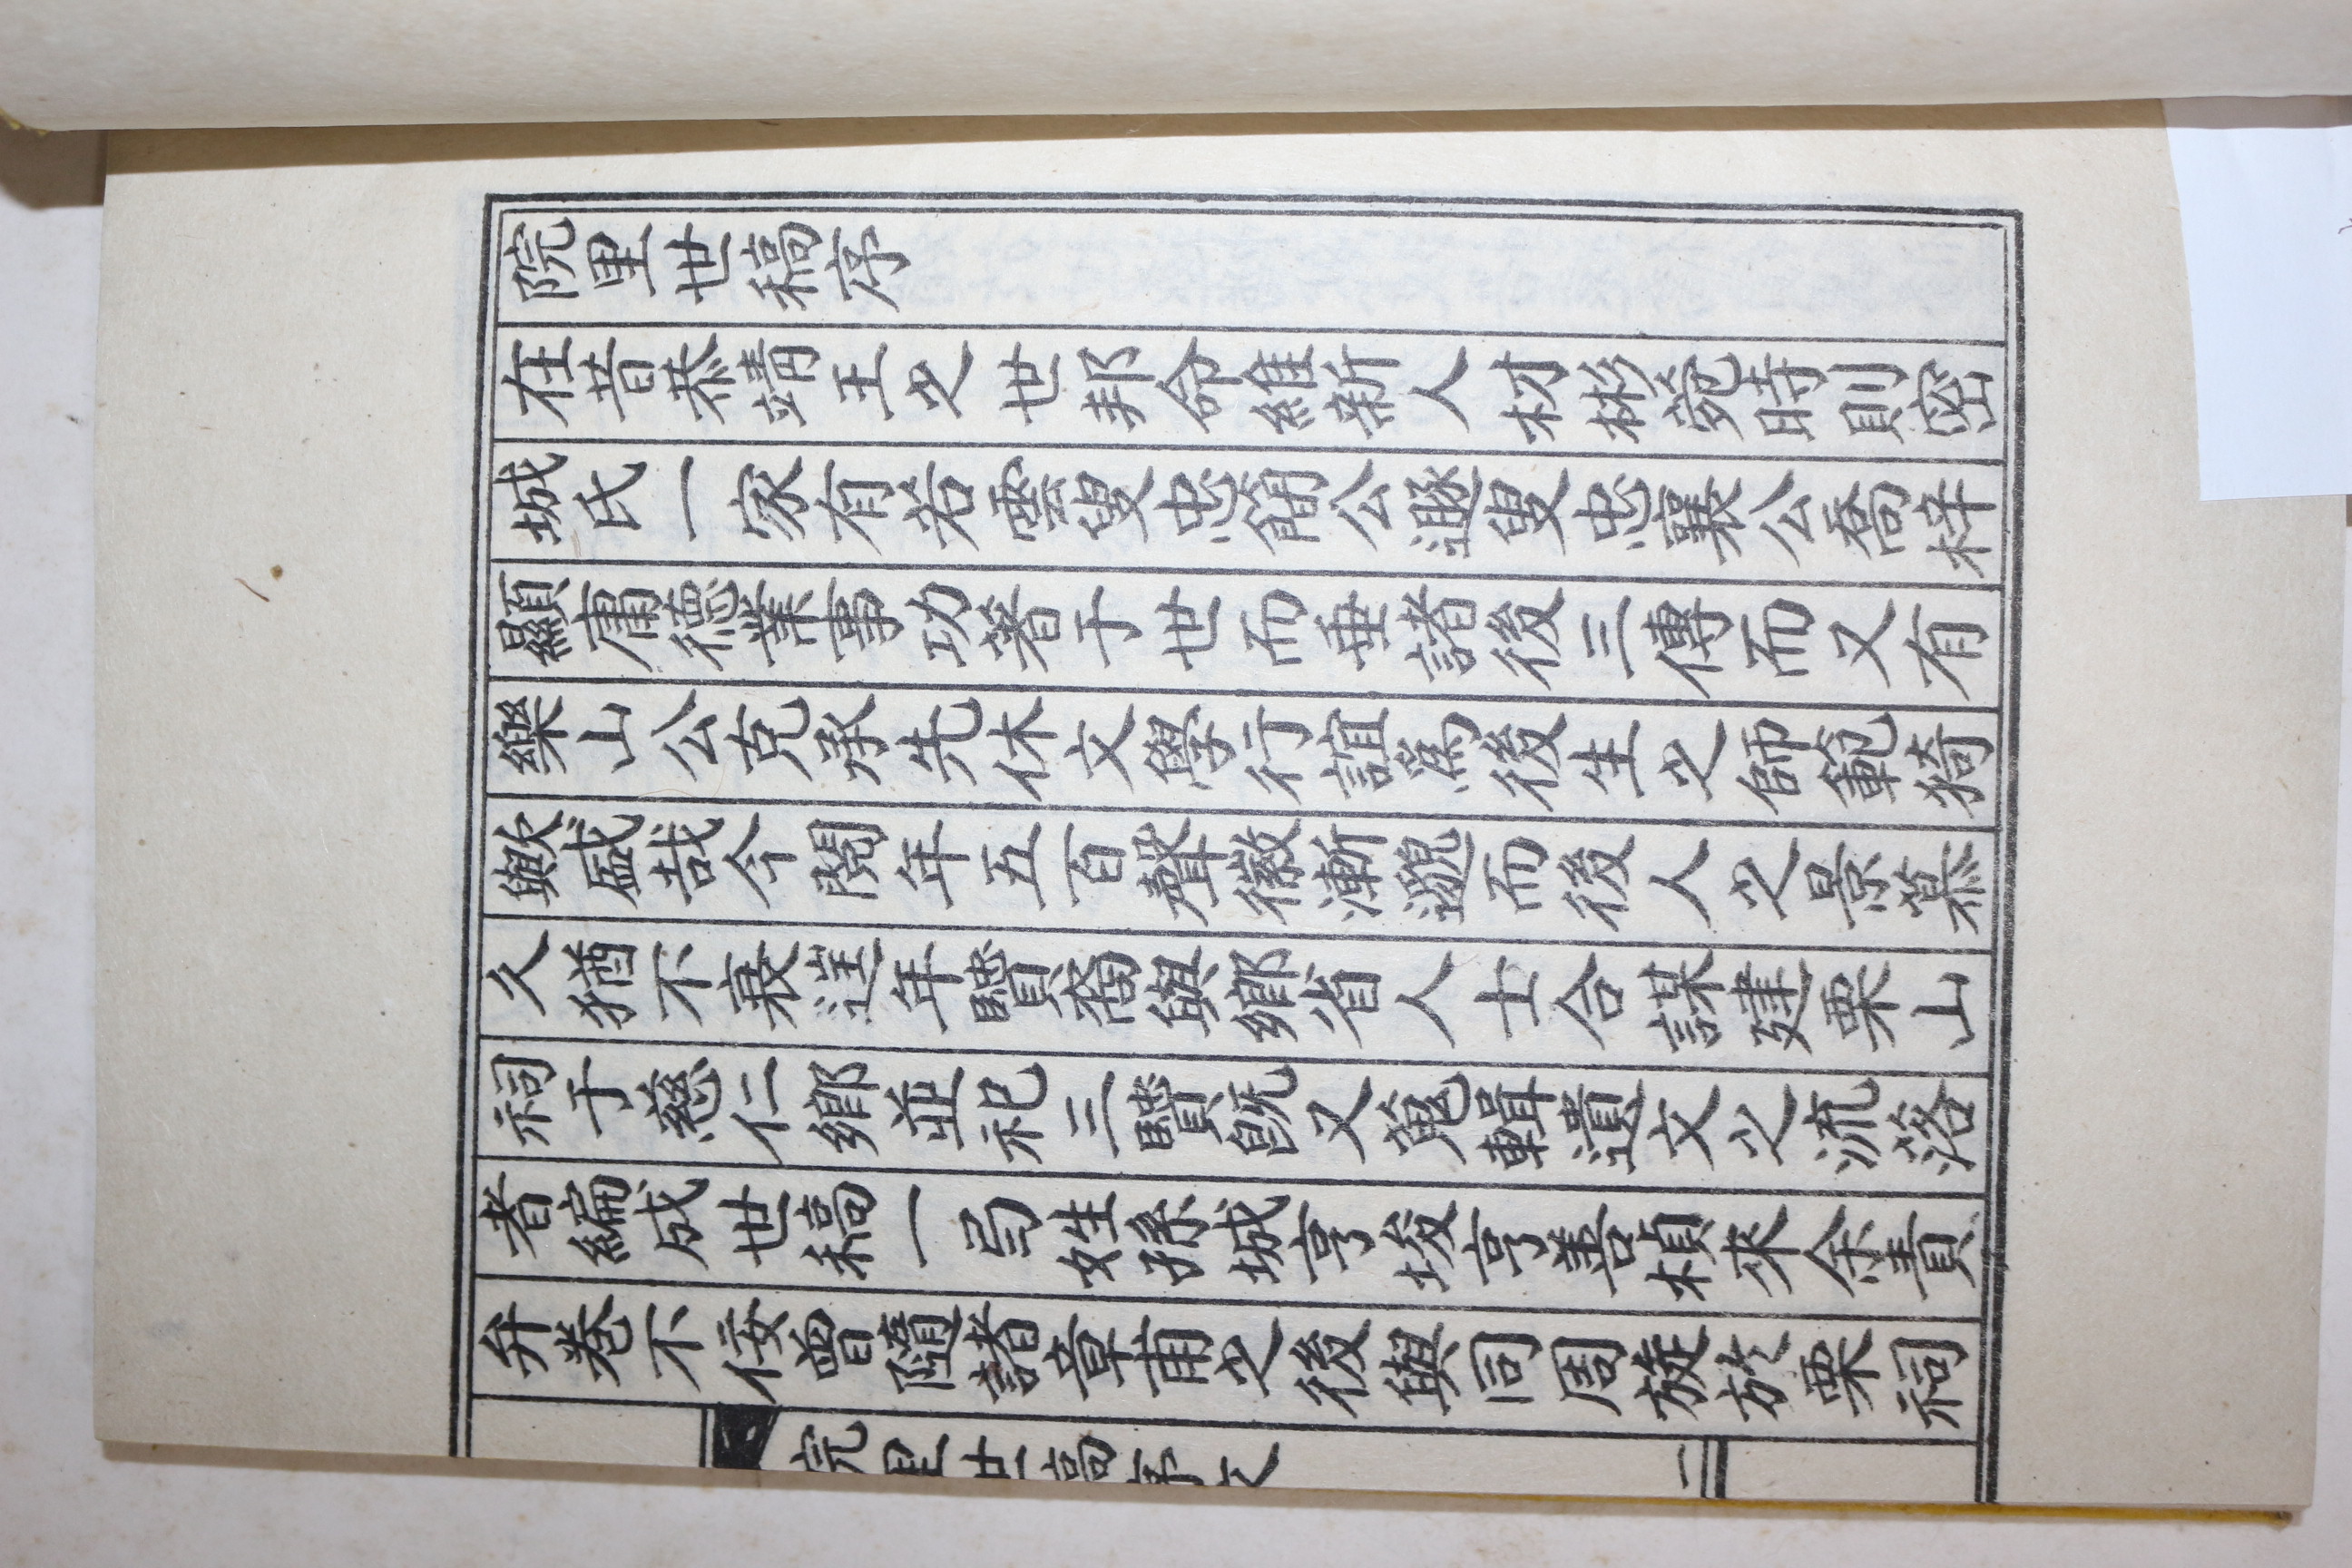 院里世稿序
在昔恭靖王之世邦命維新人材彬菀時則密
城氏一家有若雲叟忠簡公遯叟忠襄公喬梓
顯庸德業事功著于世而垂諸後三傳而又有
樂山公克承先休文學行誼爲後生之師範猗
歟盛哉今閱年五百聲徽漸邈而後人之景慕
久猶不衰逞年贒裔與鄉省人士合謀建栗山
祠于慈仁鄉並祀三贒旣又蒐輯遺文之流落
者編成世稿一弓姓孫城亨埈亨善楨來余責
弁卷不佞曾隨諸章甫之後與同周旋於栗祠
院里世稿序文
二